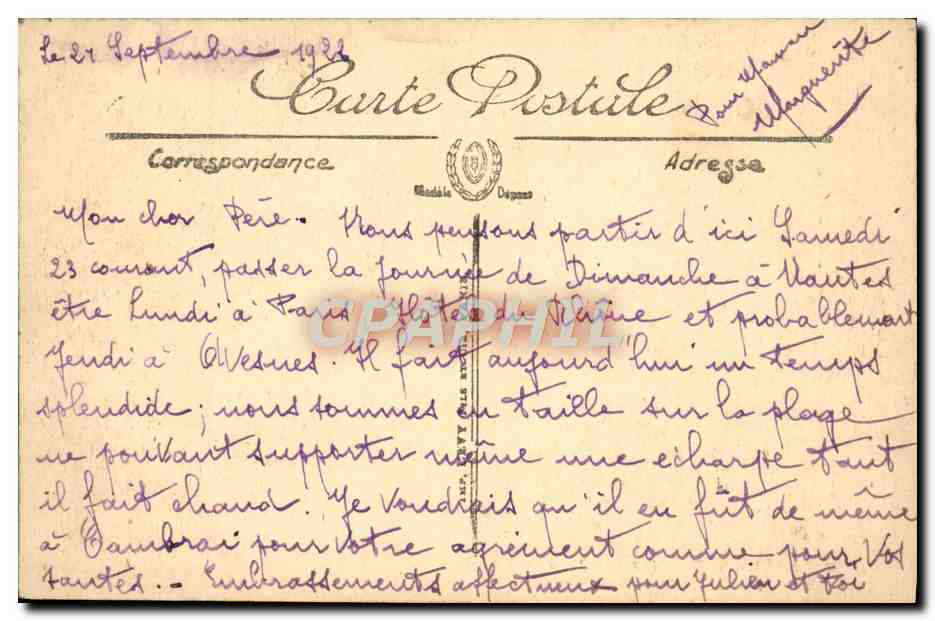 Le 21 Septembre 1922
Pour Maman
Marguerite
Carte Postale
Correspondance
Adresse
Modèle Déposé
Mon cher Père. Nous pensons partir d'ici Samedi
23 courant, passer la journée de Dimanche à Nantes
être Lundi à Paris Hôtel du Rhône et probablement
Jeudi à Avesnes. Il fait aujourd'hui un temps
splendide ; nous sommes en taille sur la plage
ne pouvant supporter même une écharpe tant
il fait chaud. Je voudrais qu'il en fût de même
à Cambrai pour votre agrément comme pour vos
santés. - Embrassements affectueux pour Julien et toi
IMP. LEVY FILS
CPAPHIL